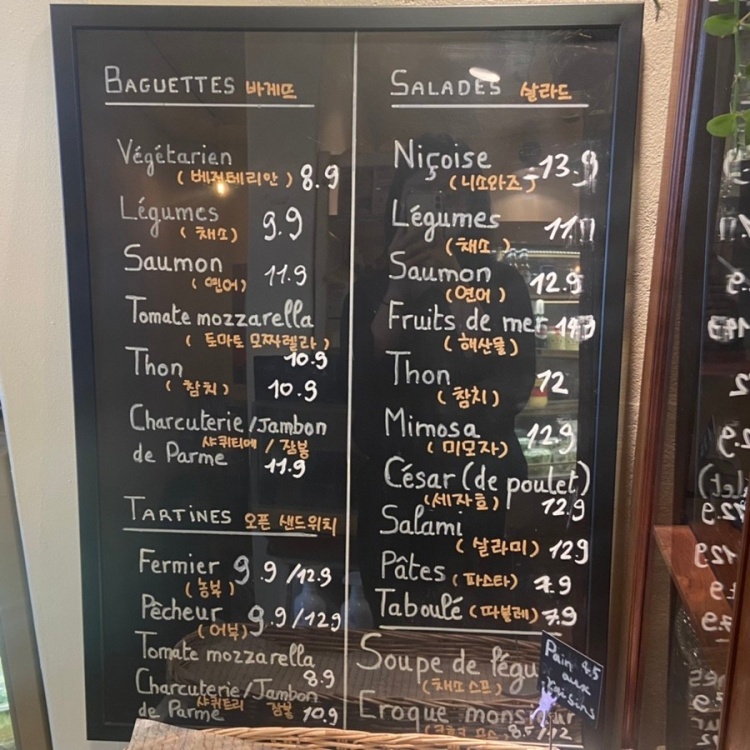 BAGUETTES 바게뜨
Végétarien
(베전테리안) 8.9
Légumes
(채소) 9.9
Saumon
(연어) 11.9
Tomate mozzarella
(토마토 모짜렐라)
10.9
Thon
(참치) 10.9
Charcuterie/Jambon
샤퀴티에 / 잠봉
de Parme 11.9
TARTINES 오픈 샌드위치
Fermier 9.9/12.9
(농부)
Pêcheur 9.9/12.9
(어부)
Tomate mozzarella
8.9
Charcuterie/Jambon
샤퀴트리 잠봉
de Parme 10.9
SALADES 살라드
Niçoise 13.9
(니소와즈)
Légumes
(채소)
Saumon 12.9
(연어)
Fruits de mer
(해산물)
Thon 12
(참치)
Mimosa 12.9
(미모자)
César (de poulet)
(세자흐) 12.9
Salami
(살라미) 12.9
Pâtes (파스타) 7.9
Taboulé (따불레) 7.9
Soupe de légu
(채소 스프)
Croque monsieur
8.5/12
Pain 4.5
aux
raisins